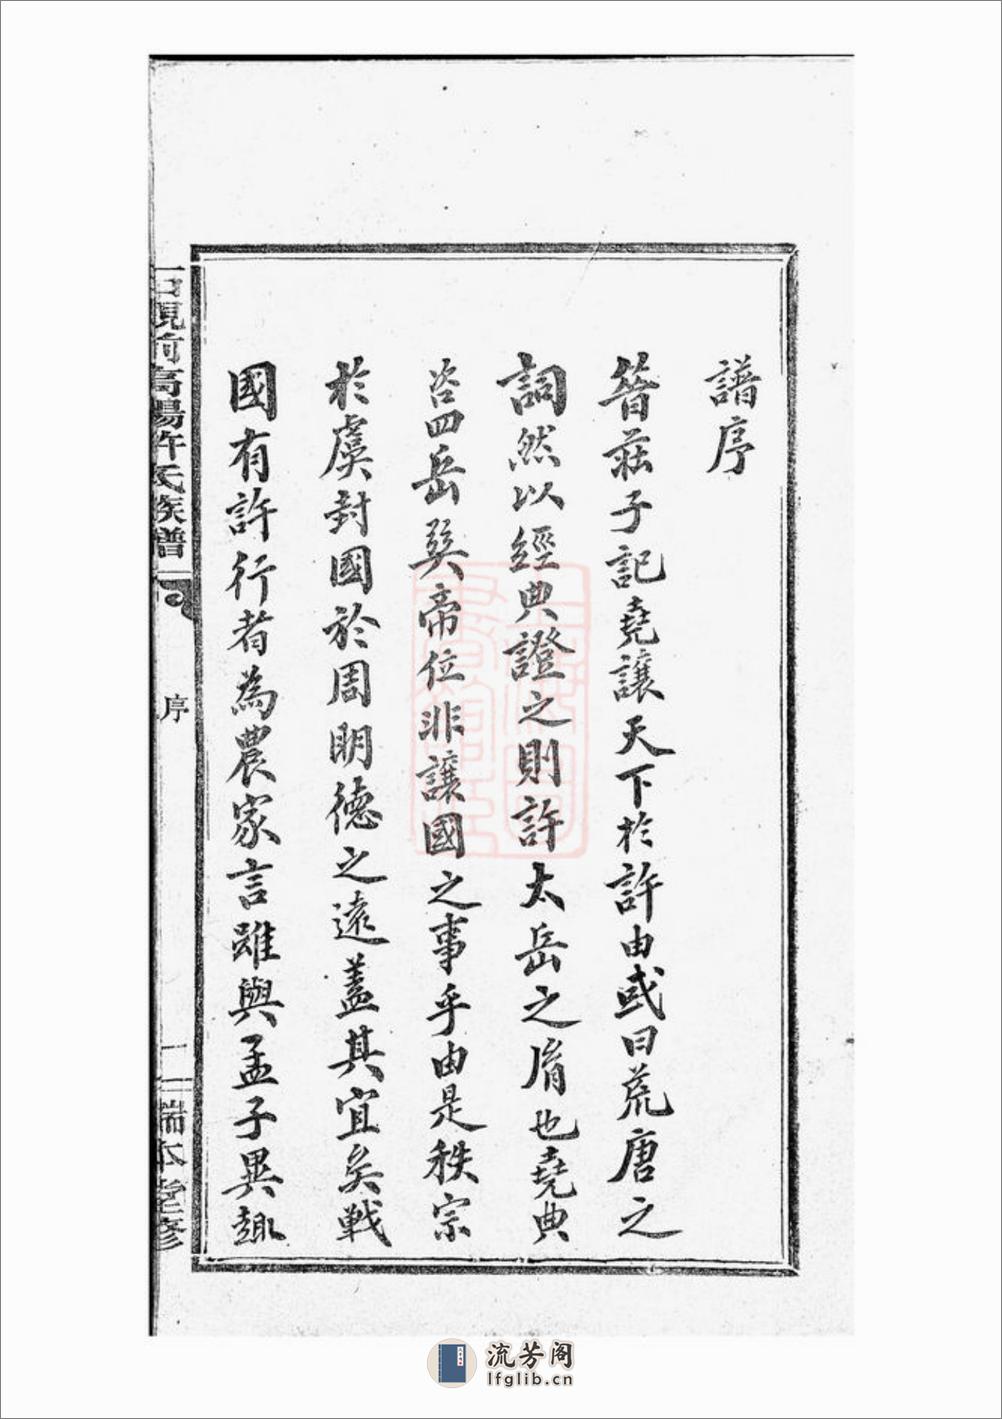 譜序
昔莊子記堯讓天下於許由或曰荒唐之
詞然以經典證之則許太岳之胤也堯典
咨四岳巽帝位非讓國之事乎由是秩宗
於虞封國於周明德之遠蓋其宜矣戰
國有許行者為農家言雖與孟子異趣
硯前高陽許氏族譜
序
一
端本堂修
流芳阁
lfglib.cn